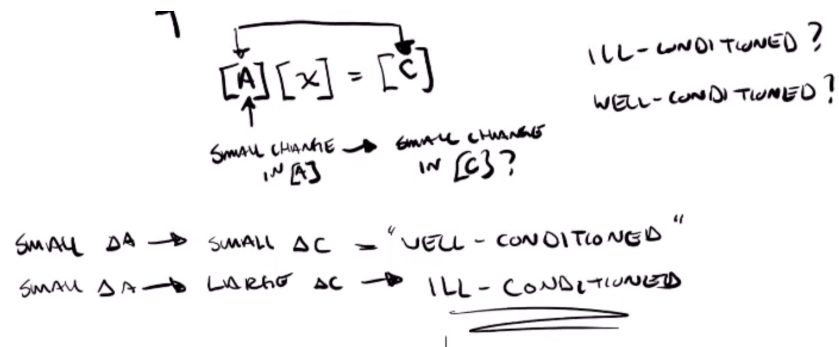 [A][x] = [C]
ILL-CONDITIONED?
WELL-CONDITIONED?
SMALL CHANGE IN [A] → SMALL CHANGE IN [C]?
SMALL ΔA → SMALL ΔC = "WELL-CONDITIONED"
SMALL ΔA → LARGE ΔC → ILL-CONDITIONED